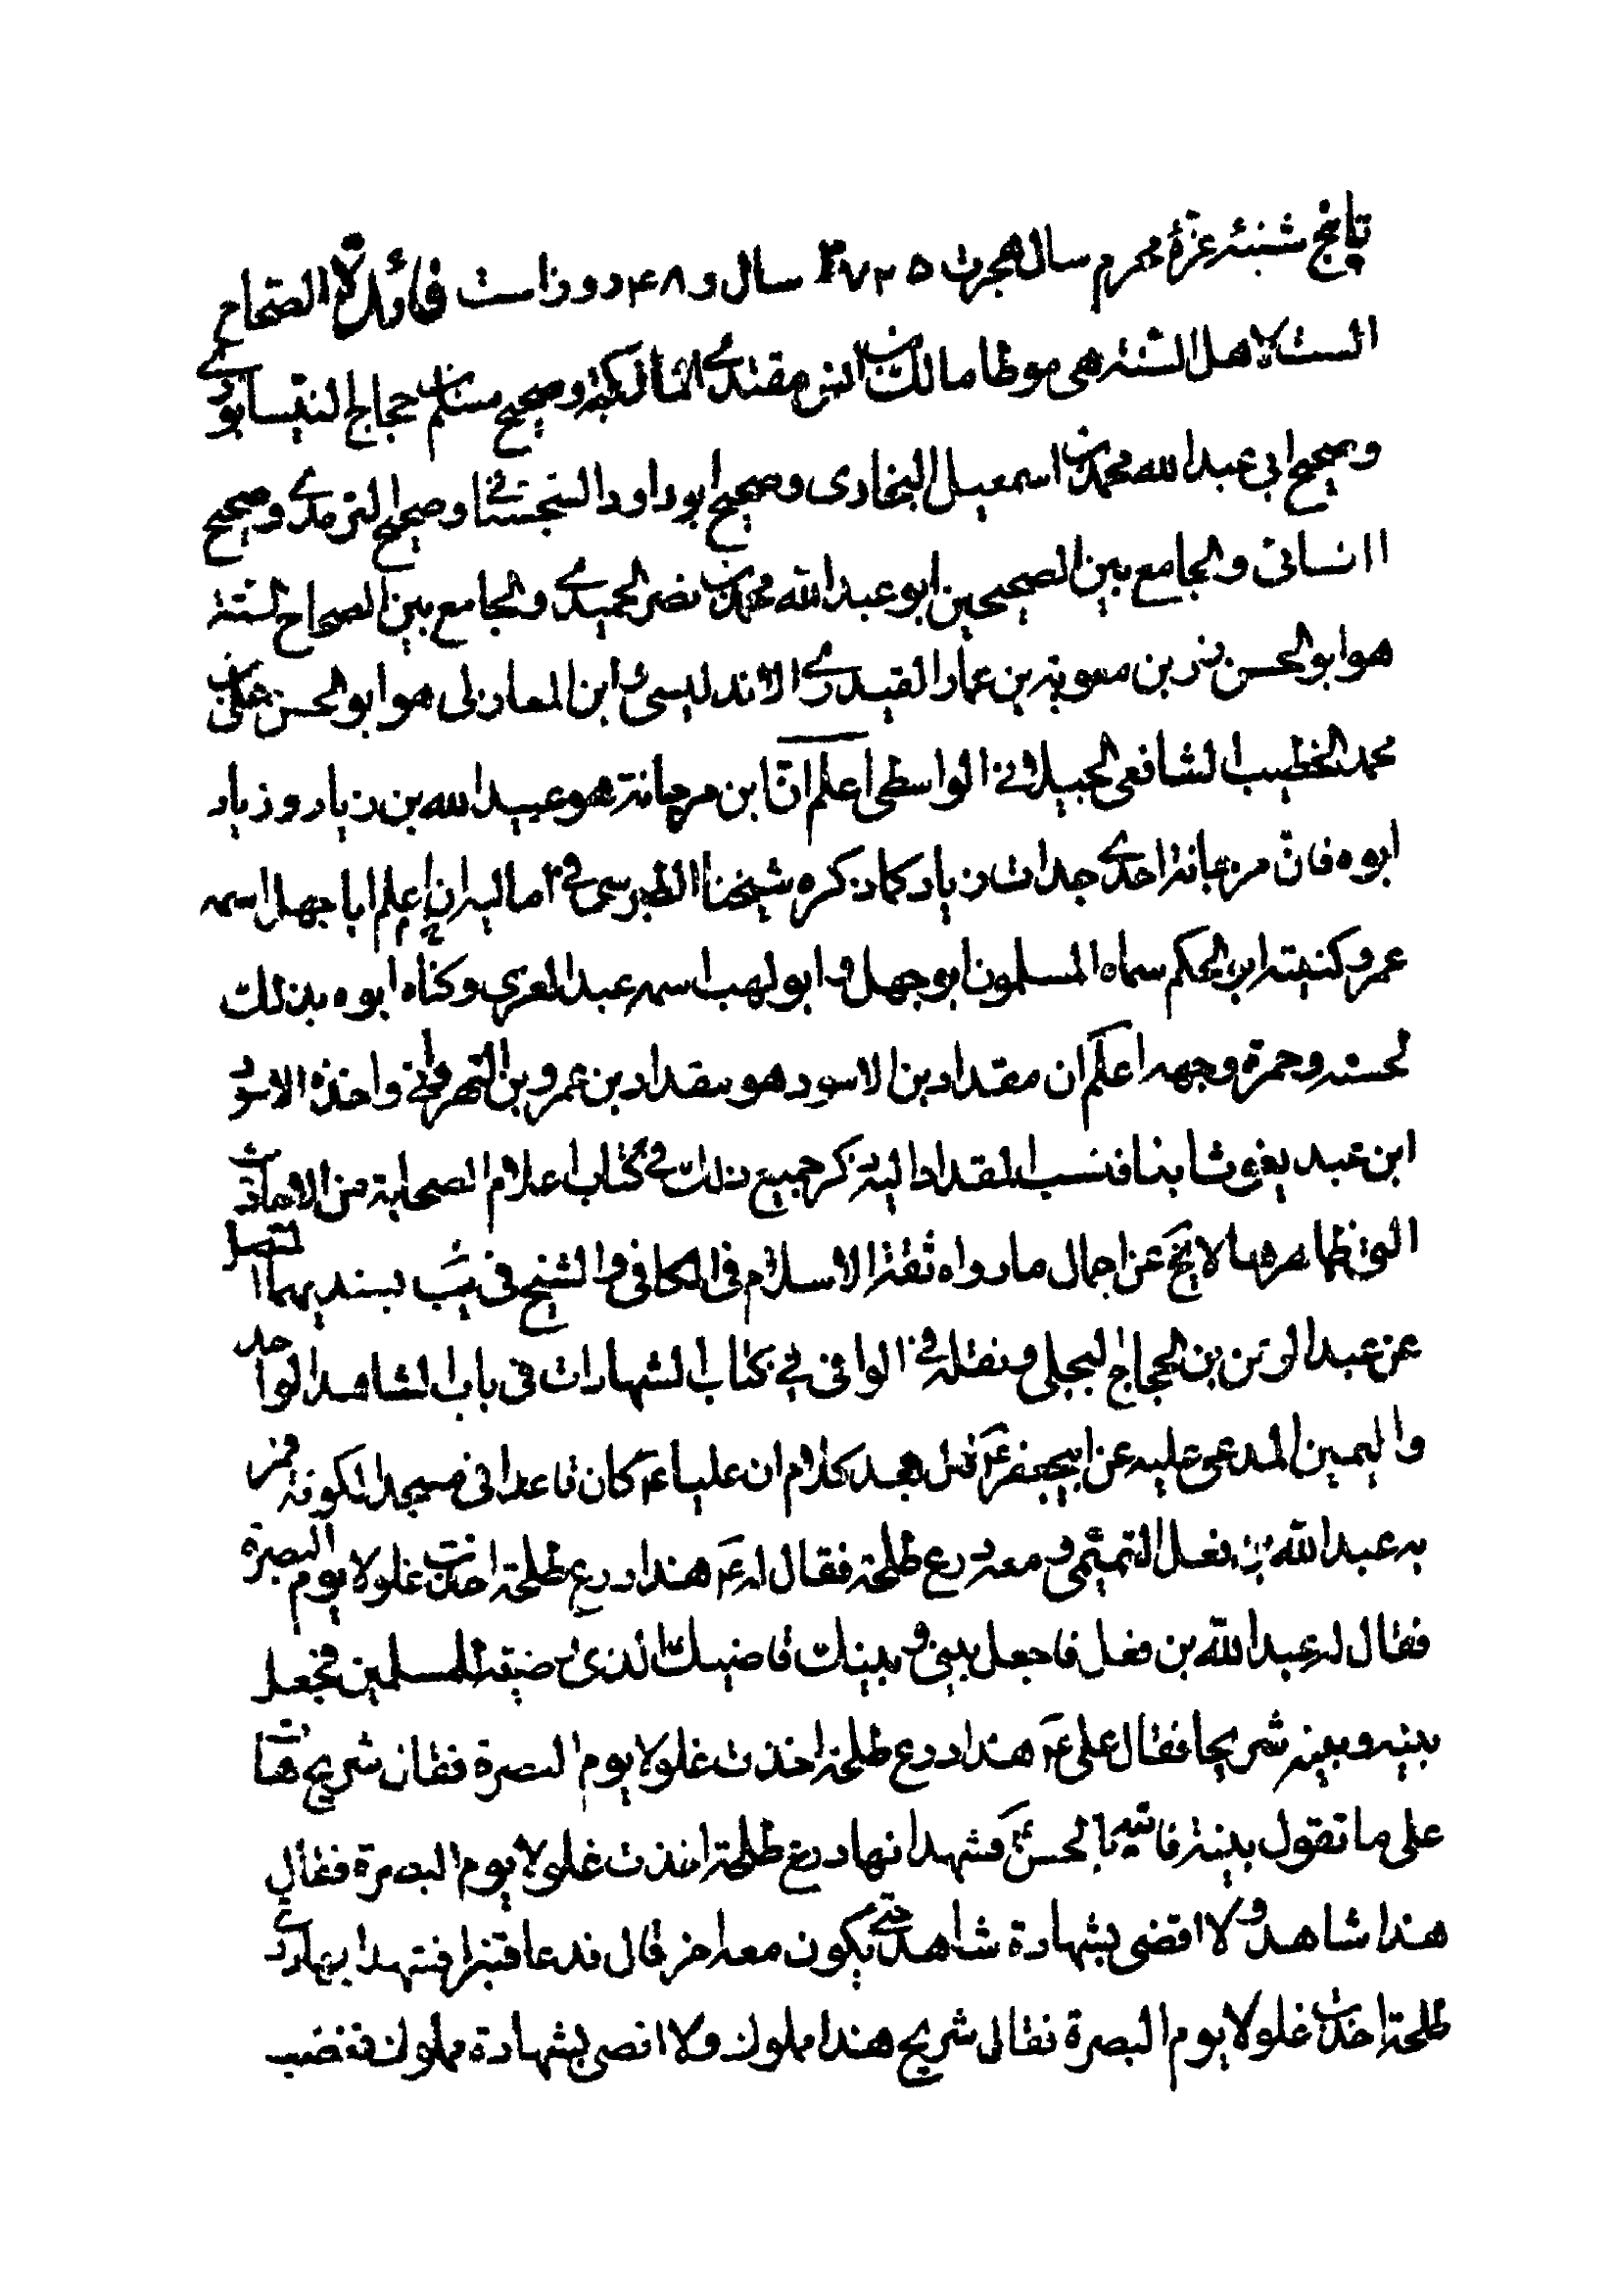 تا پنج شنبه غرّهٔ محرم سال هجرت ۳۷۲۵ سال و ۴۸ روز است فائدة الصحاح
الست لاهل السنة هی موطا مالک بن انس مقتدی المالکیة وصحیح مسلم بن حجاج النیسابوری
وصحیح ابی عبد الله محمد بن اسمعیل البخاری وصحیح ابو داود السجستانی وصحیح الترمذی وصحیح
النسائی والجامع بین الصحیحین ابو عبد الله محمد بن نصر الحمیدی والجامع بین الصحاح الستة
هو ابو الحسن بن معویة بن عمار القیدری الاندلیسی ابن المعازلی هو ابو الحسن علی بن
محمد الخطیب الشافعی الجبیلانی الواسطی اعلم انّ ابن مرجانة هو عبید الله بن زیاد وزیاد
ابوه فان مرجانة احدی جدات زیاد کما ذکره شیخنا الطبرسی فی امالیه اعلم ان ابا جهل اسمه
عمرو کنیته ابن الحکم سماه المسلمون ابو جهل و ابو لهب اسمه عبد العزی وکناه ابوه بذلک
لحسنه وحمرة وجهه اعلم ان مقداد بن الاسود هو مقداد بن عمرو بن البهرانی واخذه الاسود
ابن عبد یغوث ابنا فنسب المقداد الیه ذکر جمیع ذلک فی کتاب اعلام الصحابة من الاحادیث
التی ظاهرها لا یخ عن اجمال ما رواه ثقة الاسلام فی الکافی والشیخ فی یب بسندیهما المتصل
عن عبد الرحمن بن الحجاج البجلی ونقله فی الوافی فی کتاب الشهادات فی باب الشاهد الواحد
والیمین المدعی علیه عن ابیجعفر ع قال بعد کلام ان علیا ع کان قاعدا فی مسجد الکوفة فمر
به عبد الله بن نفل التمیمی و معه درع طلحة فقال له ع هذا درع طلحة اخذت غلولا یوم البصرة
فقال له عبد الله بن مغل فاجعل بینی و بینک قاضیک الذی رضیته للمسلمین فجعل
بینه وبینه شریحا فقال علی ع هذا درع طلحة اخذت غلولا یوم البصرة فقال شریح هات
علی ما تقول بینة فاتیه بالحسن ع فشهد انها درع طلحة اخذت غلولا یوم البصرة فقال
هذا شاهد ولا اقضی بشهادة شاهد حتی یکون معه اخر قال فدعا قنبرا فشهد انها درع
طلحة اخذت غلولا یوم البصرة فقال شریح هذا مملوک ولا اقضی بشهادة مملوک فغضب